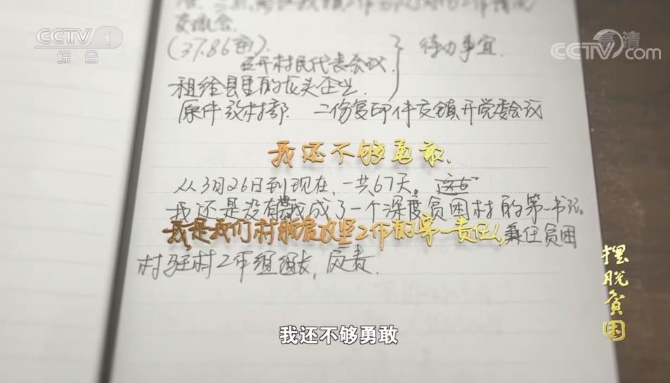 CCTV 1
综合
CCTV.com
高清
(37.86亩)
召开村民代表会议
待办事宜
租给县里的龙头企业
原件放村部 二份复印件交镇开党委会议
我还不够勇敢.
从3月26日到现在,一共67天。
我还是没有 我成了一个深度贫困村的第一书记
我是我们村脱贫攻坚工作的第一责任人,兼任贫困
村驻村工作组组长,负责
摆脱贫困
我还不够勇敢